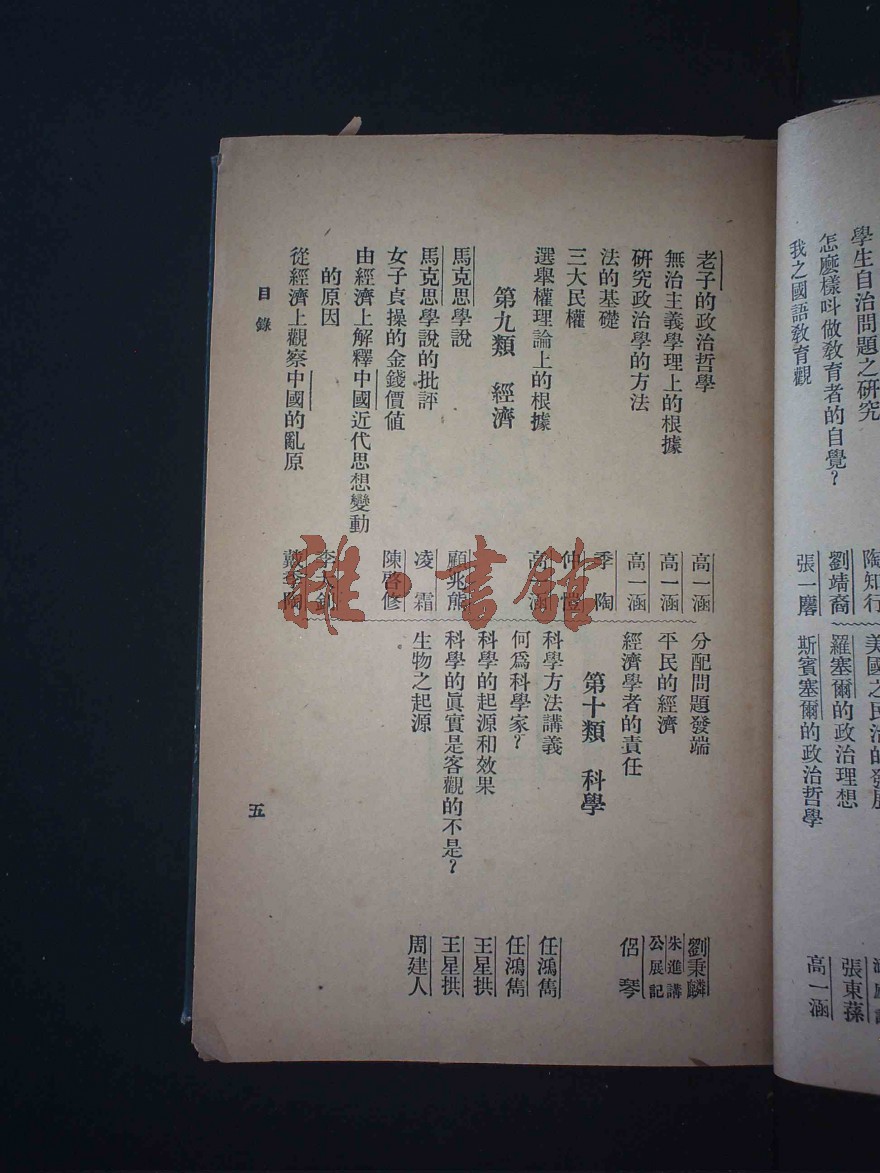 學生自治問題之研究
怎麼樣呌做教育者的自覺?
我之國語教育觀
陶知行
劉靖裔
張一麐
美國之民治的發展
羅塞爾的政治理想
斯賓塞爾的政治哲學
張東蓀
高一涵
老子的政治哲學
高一涵
無治主義學理上的根據
高一涵
研究政治學的方法
高一涵
法的基礎
季陶
三大民權
仲愷
選舉權理論上的根據
高一涵
第九類 經濟
馬克思學說
顧兆熊
馬克思學說的批評
凌霜
女子貞操的金錢價值
陳啓修
由經濟上解釋中國近代思想變動
的原因
李大釗
從經濟上觀察中國的亂原
戴季陶
分配問題發端
劉秉麟
平民的經濟
朱進講
公展記
經濟學者的責任
侶琴
第十類 科學
科學方法講義
任鴻雋
何爲科學家?
任鴻雋
科學的起源和效果
王星拱
科學的眞實是客觀的不是?
王星拱
生物之起源
周建人
目錄
五
雜·書館